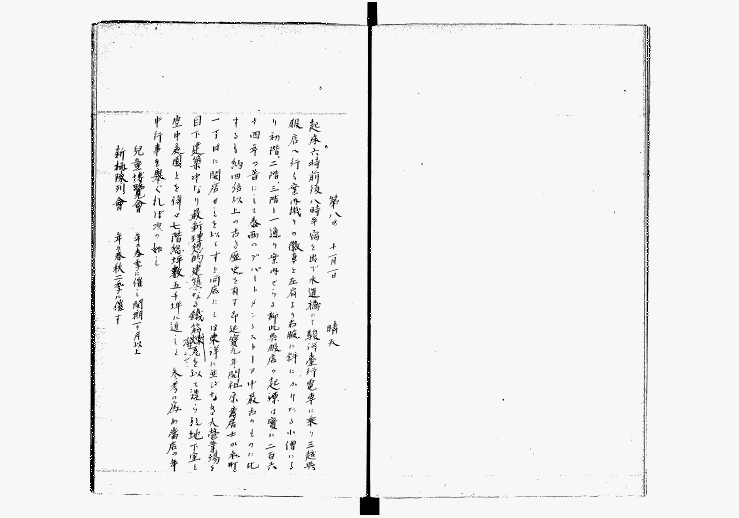 第八日 十一月一日 晴天
起床六時前後八時半宿を出で水道橋にて駿河臺行電車に乗り三越呉
服店へ行く案内掛りの徽章を左肩より右脇に斜にかけたる小僧によ
り初階、二階、三階と一通り案内せらる抑此呉服店の起源は實に二百六
十四年の昔にして泰西のデパートメントストーア中最古のものに比
するも約四倍以上の古き歴史を有す即延寶元年開祖宗壽居士が本町
一丁目に開店せしを以てす同店にしては東洋に並びなき大營業場を
目下建築中なり最新理想的建築なる鐵筋煉瓦を以て造られ地下室と
空中庭園とを併せ七階総坪数五千坪に近しと 参考の為め當店の年
中行事を擧ぐれば次の如し
兒童博覧會 年の春季に催し開期一ヶ月以上
新柄陳列會 年の春秋二季に催す